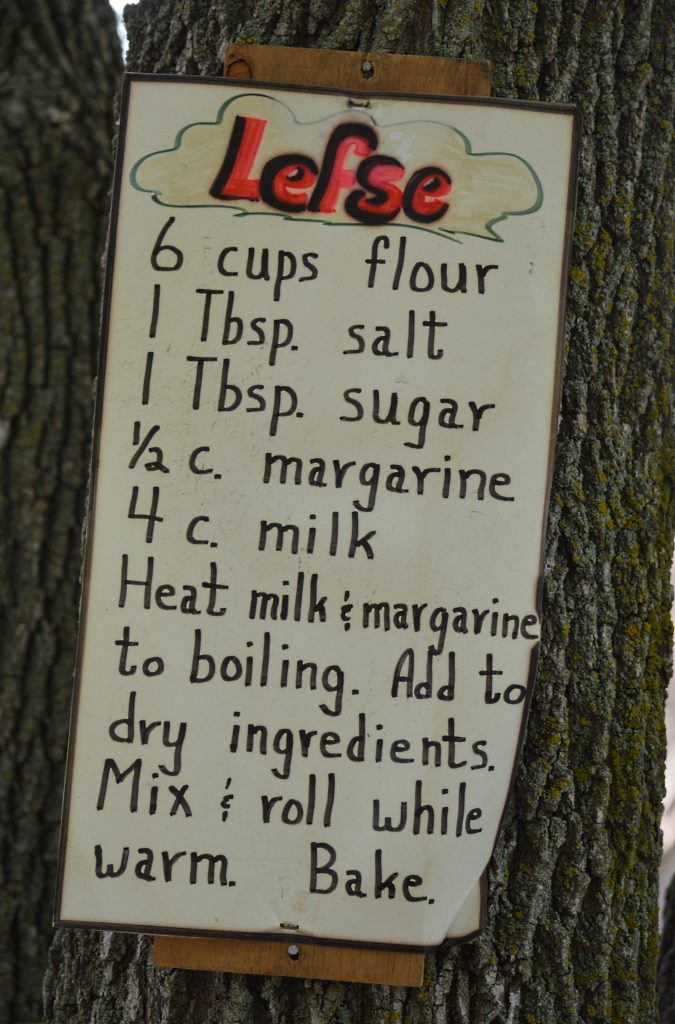 Lefse
6 cups flour
1 Tbsp. salt
1 Tbsp. sugar
½ c. margarine
4 c. milk
Heat milk & margarine
to boiling. Add to
dry ingredients.
Mix & roll while
warm. Bake.